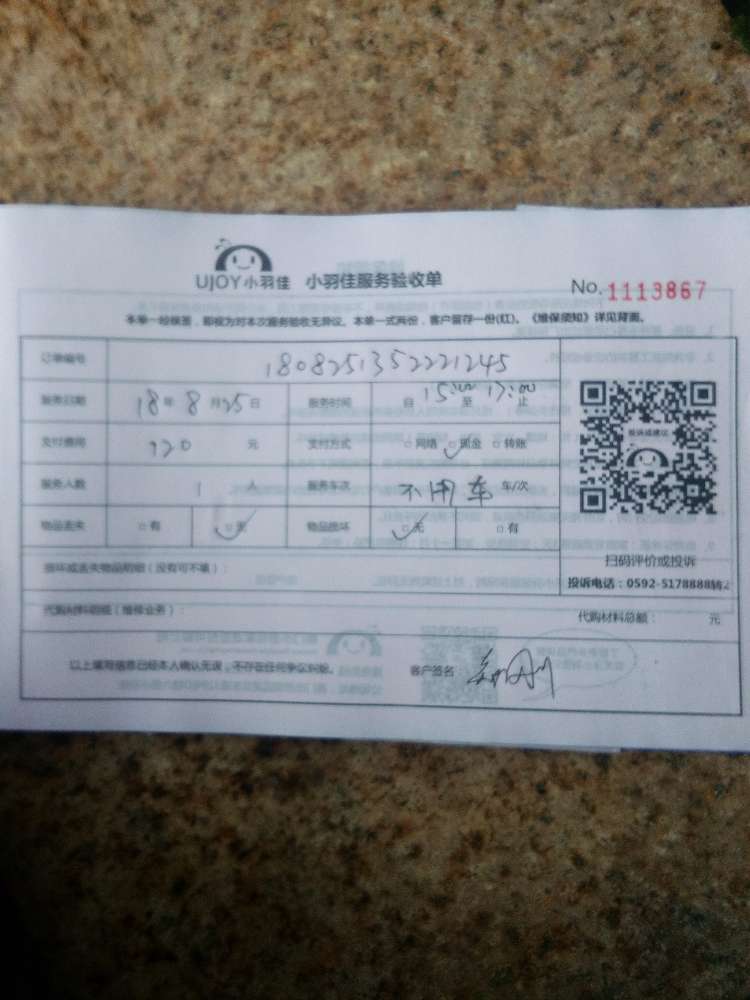 UJOY小羽佳 小羽佳服务验收单
No.1113867
本单一经核签，即视为对本次服务验收无异议。本单一式两份，客户留存一份(红)。《维保须知》详见背面。
订单编号 1808251352221245
服务日期 18年8月25日 服务时间 自15:00至17:00止
支付费用 920元 支付方式 □网络 □现金 □转账
服务人数 1人 服务车次 不用车 车/次
物品丢失 □有 □无 物品损坏 □无 □有
投诉或建议
扫码评价或投诉
投诉电话：0592-5178888转2
损坏或丢失物品明细（没有可不填）：
代购材料明细（维修业务）： 代购材料总额： 元
以上填写信息已经本人确认无误，不存在任何争议纠纷。 客户签名